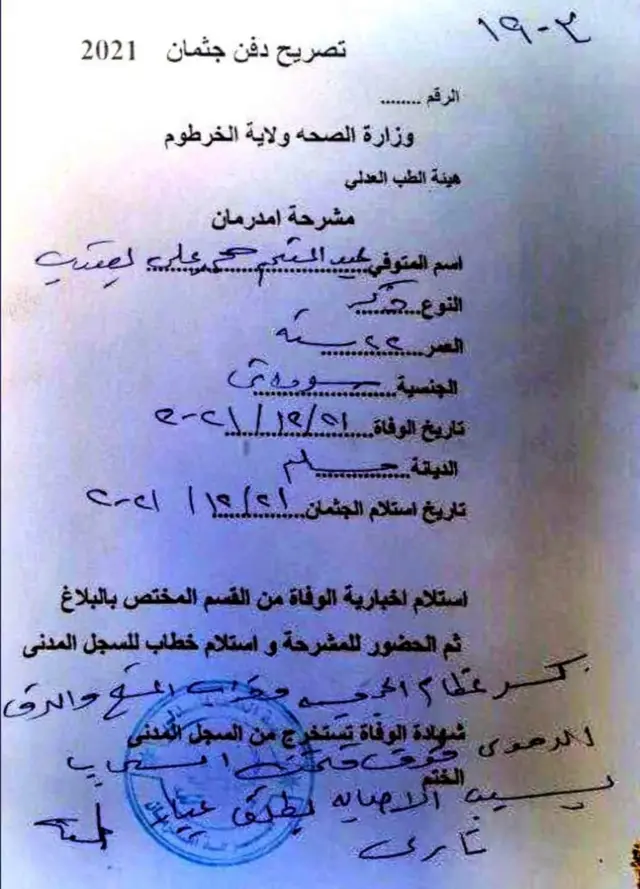 ١٩-٣
تصريح دفن جثمان 2021
الرقم ........
وزارة الصحه ولاية الخرطوم
هيئة الطب العدلي
مشرحة امدرمان
اسم المتوفي عبد المنعم محمد علي
النوع ذكر
العمر ٢٢ سنه
الجنسية سوداني
تاريخ الوفاة ٢٠٢١/١٢/
الديانة مسلم
تاريخ استلام الجثمان ٢٠٢١/١٢/٢١
استلام اخبارية الوفاة من القسم المختص بالبلاغ
ثم الحضور للمشرحة و استلام خطاب للسجل المدنى
كسر عظام الجمجمه
شهادة الوفاة تستخرج من السجل المدنى
الختم
بسبب الاصابه بطلق
نارى